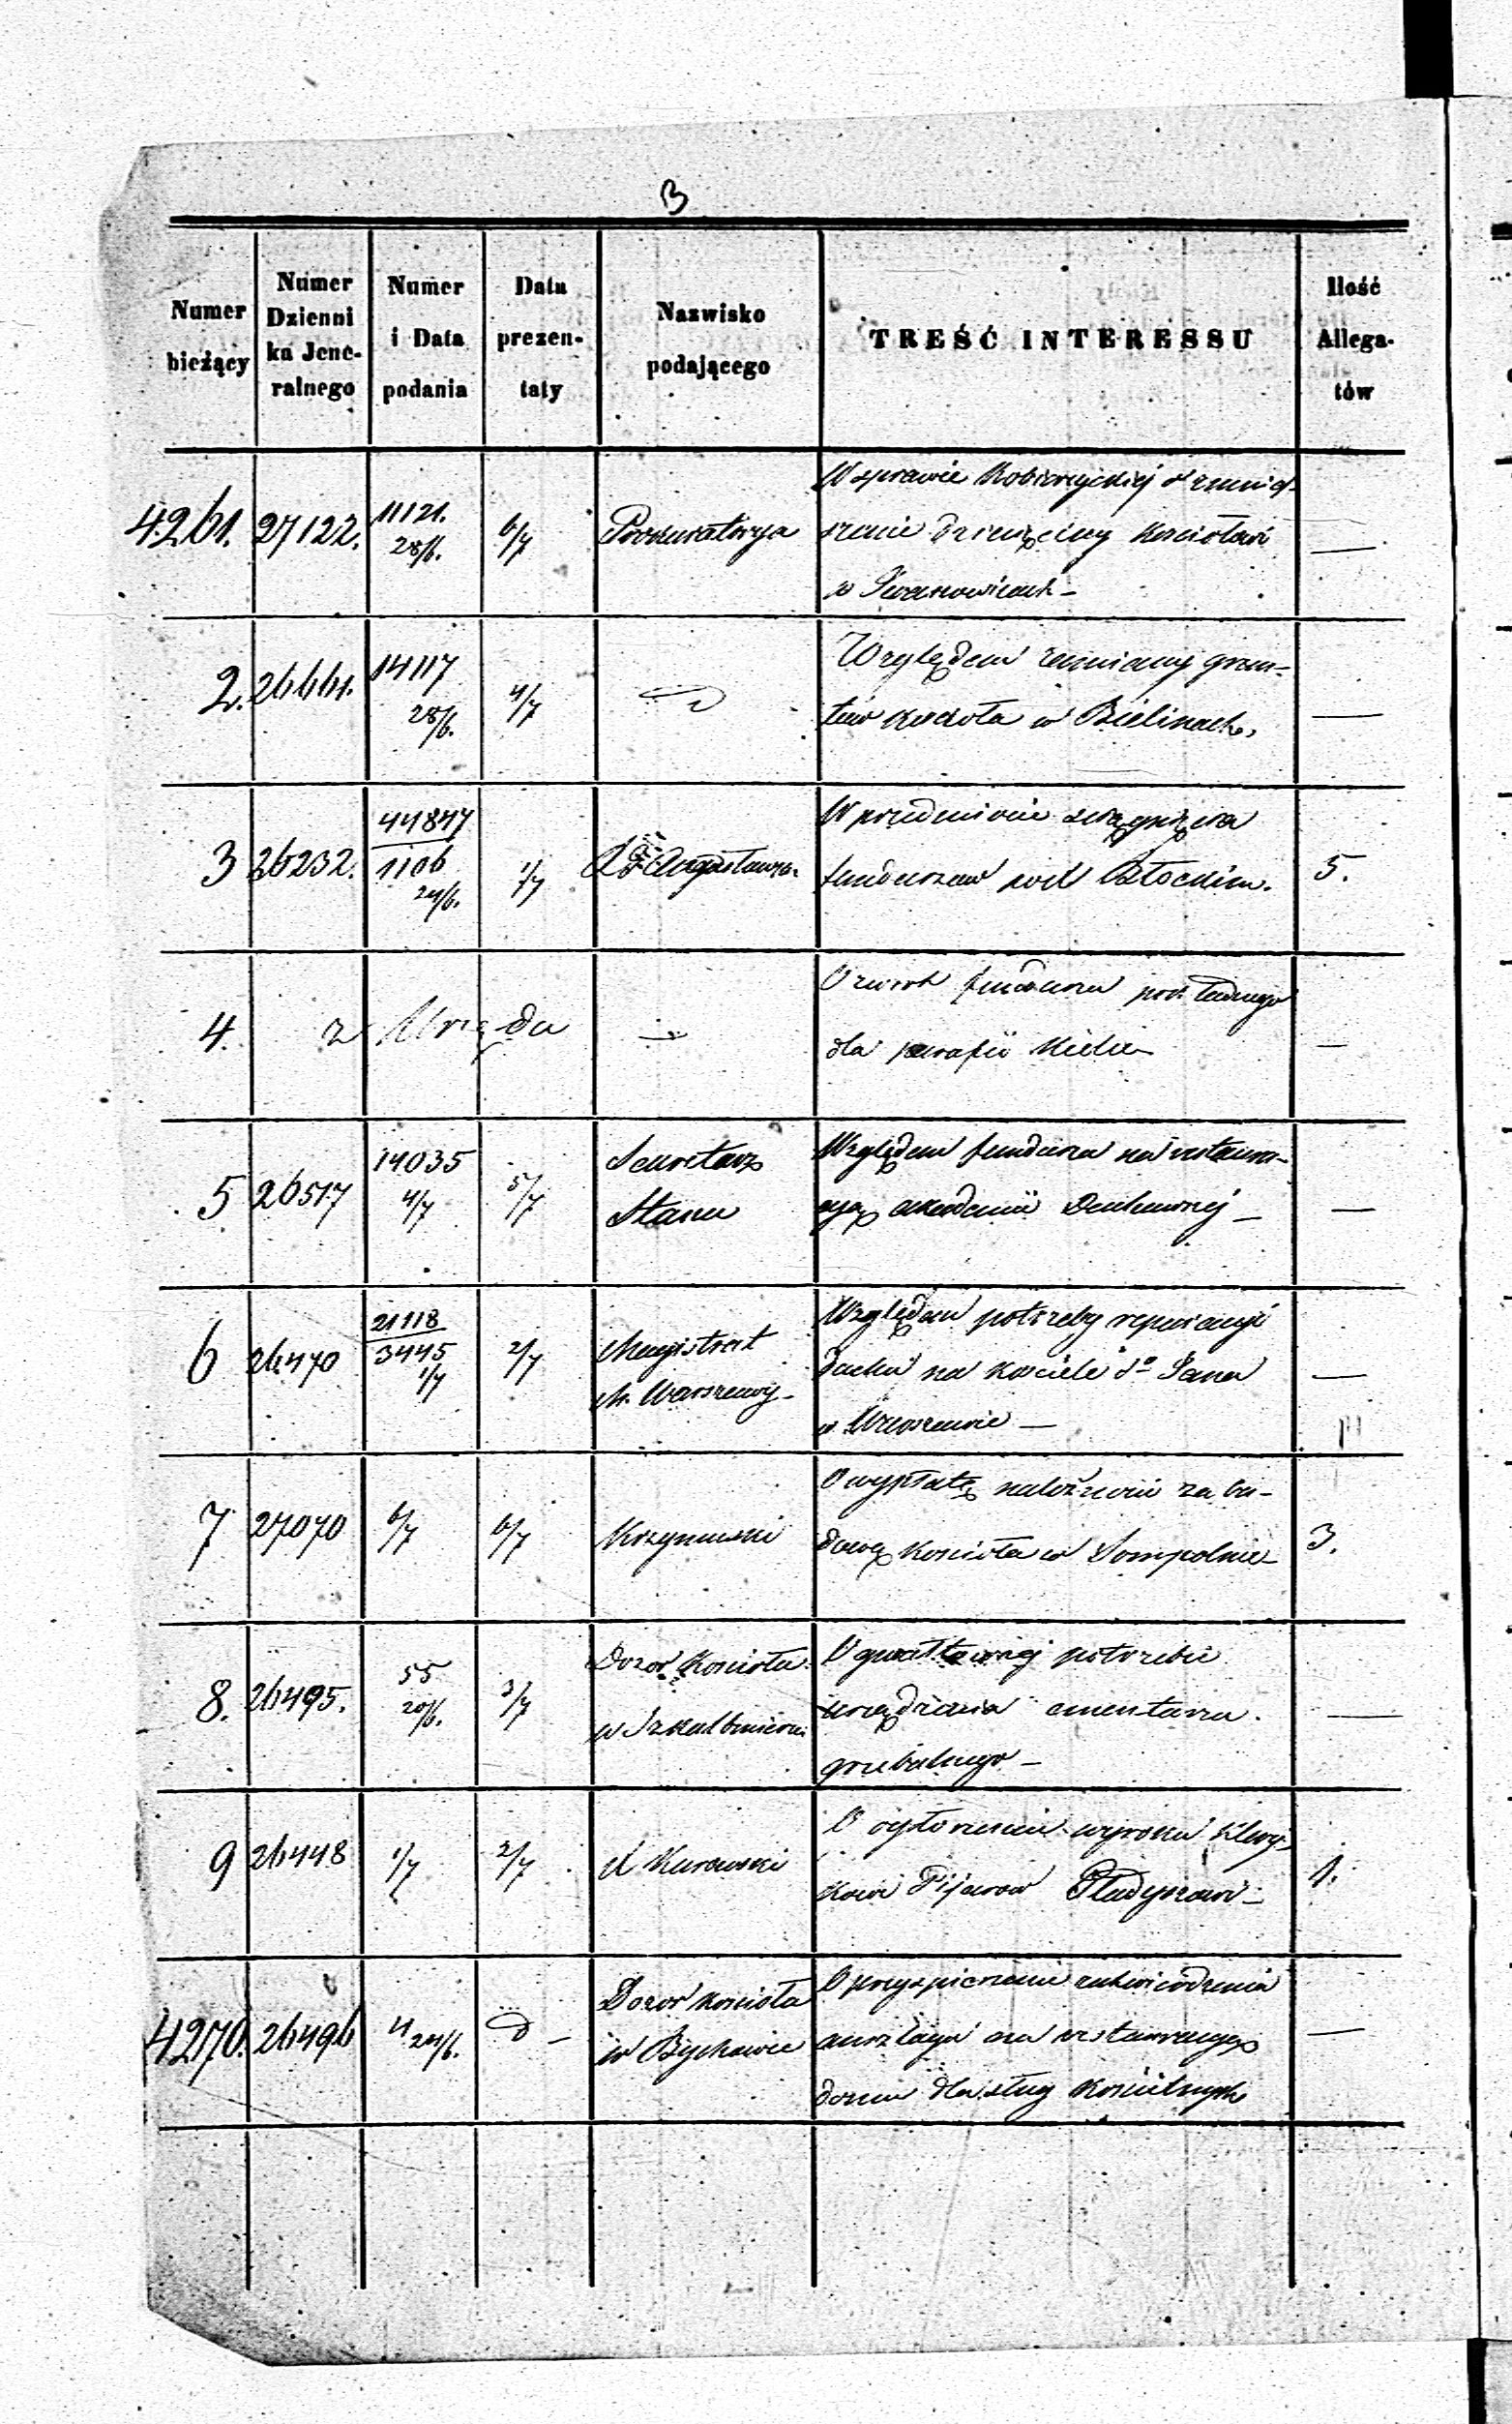 B
Numer bieżący
Numer Dzienni ka Jene- ralnego
Numer i Data podania
Data prezen- taty
Nazwisko podającego
TREŚĆ INTERESSU
Ilość Allega- tów
4261. 27122. 11121. 28/6. 6/7 Prokuratorya
W sprawie Kobierzyckiej o zmniej-
szenie dziesięciny Kościołowi
w Iwanowicach –
—
2. 26661. 14117 28/6. 4/7
Względem zamiany grun-
tów kościoła w Bielinach.
—
3 26232. 44847 1106 24/6. 1/7 Augustowski
W przedmiocie
funduszów pod Płockim.
5.
4. z Urzędu
O zwrot funduszu
dla parafii Kielce
—
5 26517 14035 4/7 5/7 Sekretarz
Stanu
Względem funduszu na restaura-
cyą akademii Duchownej –
—
6 26470 21118 3445 1/7 2/7 Magistrat
M. Warszawy –
Względem potrzeby reparacyi
dachu na kościele Sº Jana
w Warszawie —
—
7 27070 6/7 6/7 Krzymuski
O wypłatę należności za bu-
dowę Kościoła w Sompolnie –
3.
8. 26495. 55 20/6. 3/7 Dozór Kościoła
w Szkalbmierzu
O gwałtownej potrzebie
urządzenia cmentarza
grzebalnego –
—
9 26448 1/7 2/7 X Kurowski
O wyroku Klery-
kowi Pijarów
1.
4270. 26496 4 24/6. d –
Dozór kościoła
w Bychawie
O przyspieszenie zatwierdzenia
anszlagu na restauracyą
domu dla sług Kościelnych
—